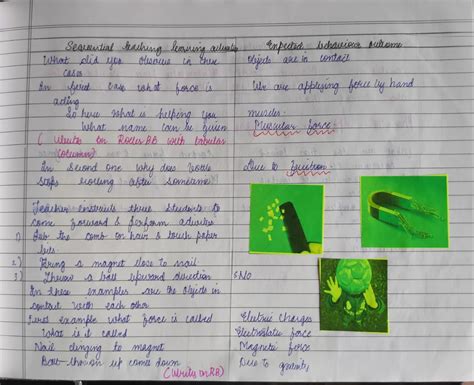 Sequential teaching learning activities
Expected behaviour outcome
What did you observe in these
cases
Objects are in contact
In first case what force is
acting
We are applying force by hand
So here what is helping you
muscles.
What name can be given
Muscular force
(Writes on Roller BB with tabular
column)
In second one why does
stops after sometime
Due to friction
Teacher instructs three students to
come forward & perform activities
1) Rub the comb on hair & touch paper
bits.
2) Bring a magnet close to nail
3) Throw a ball upward direction
In these examples are the objects in
contact with each other
No
First example what force is called
Electric Charges
What is it called
Electrostatic force
Nail clinging to magnet
Magnetic force
on up come down
Due to gravity
(Writes on RB)